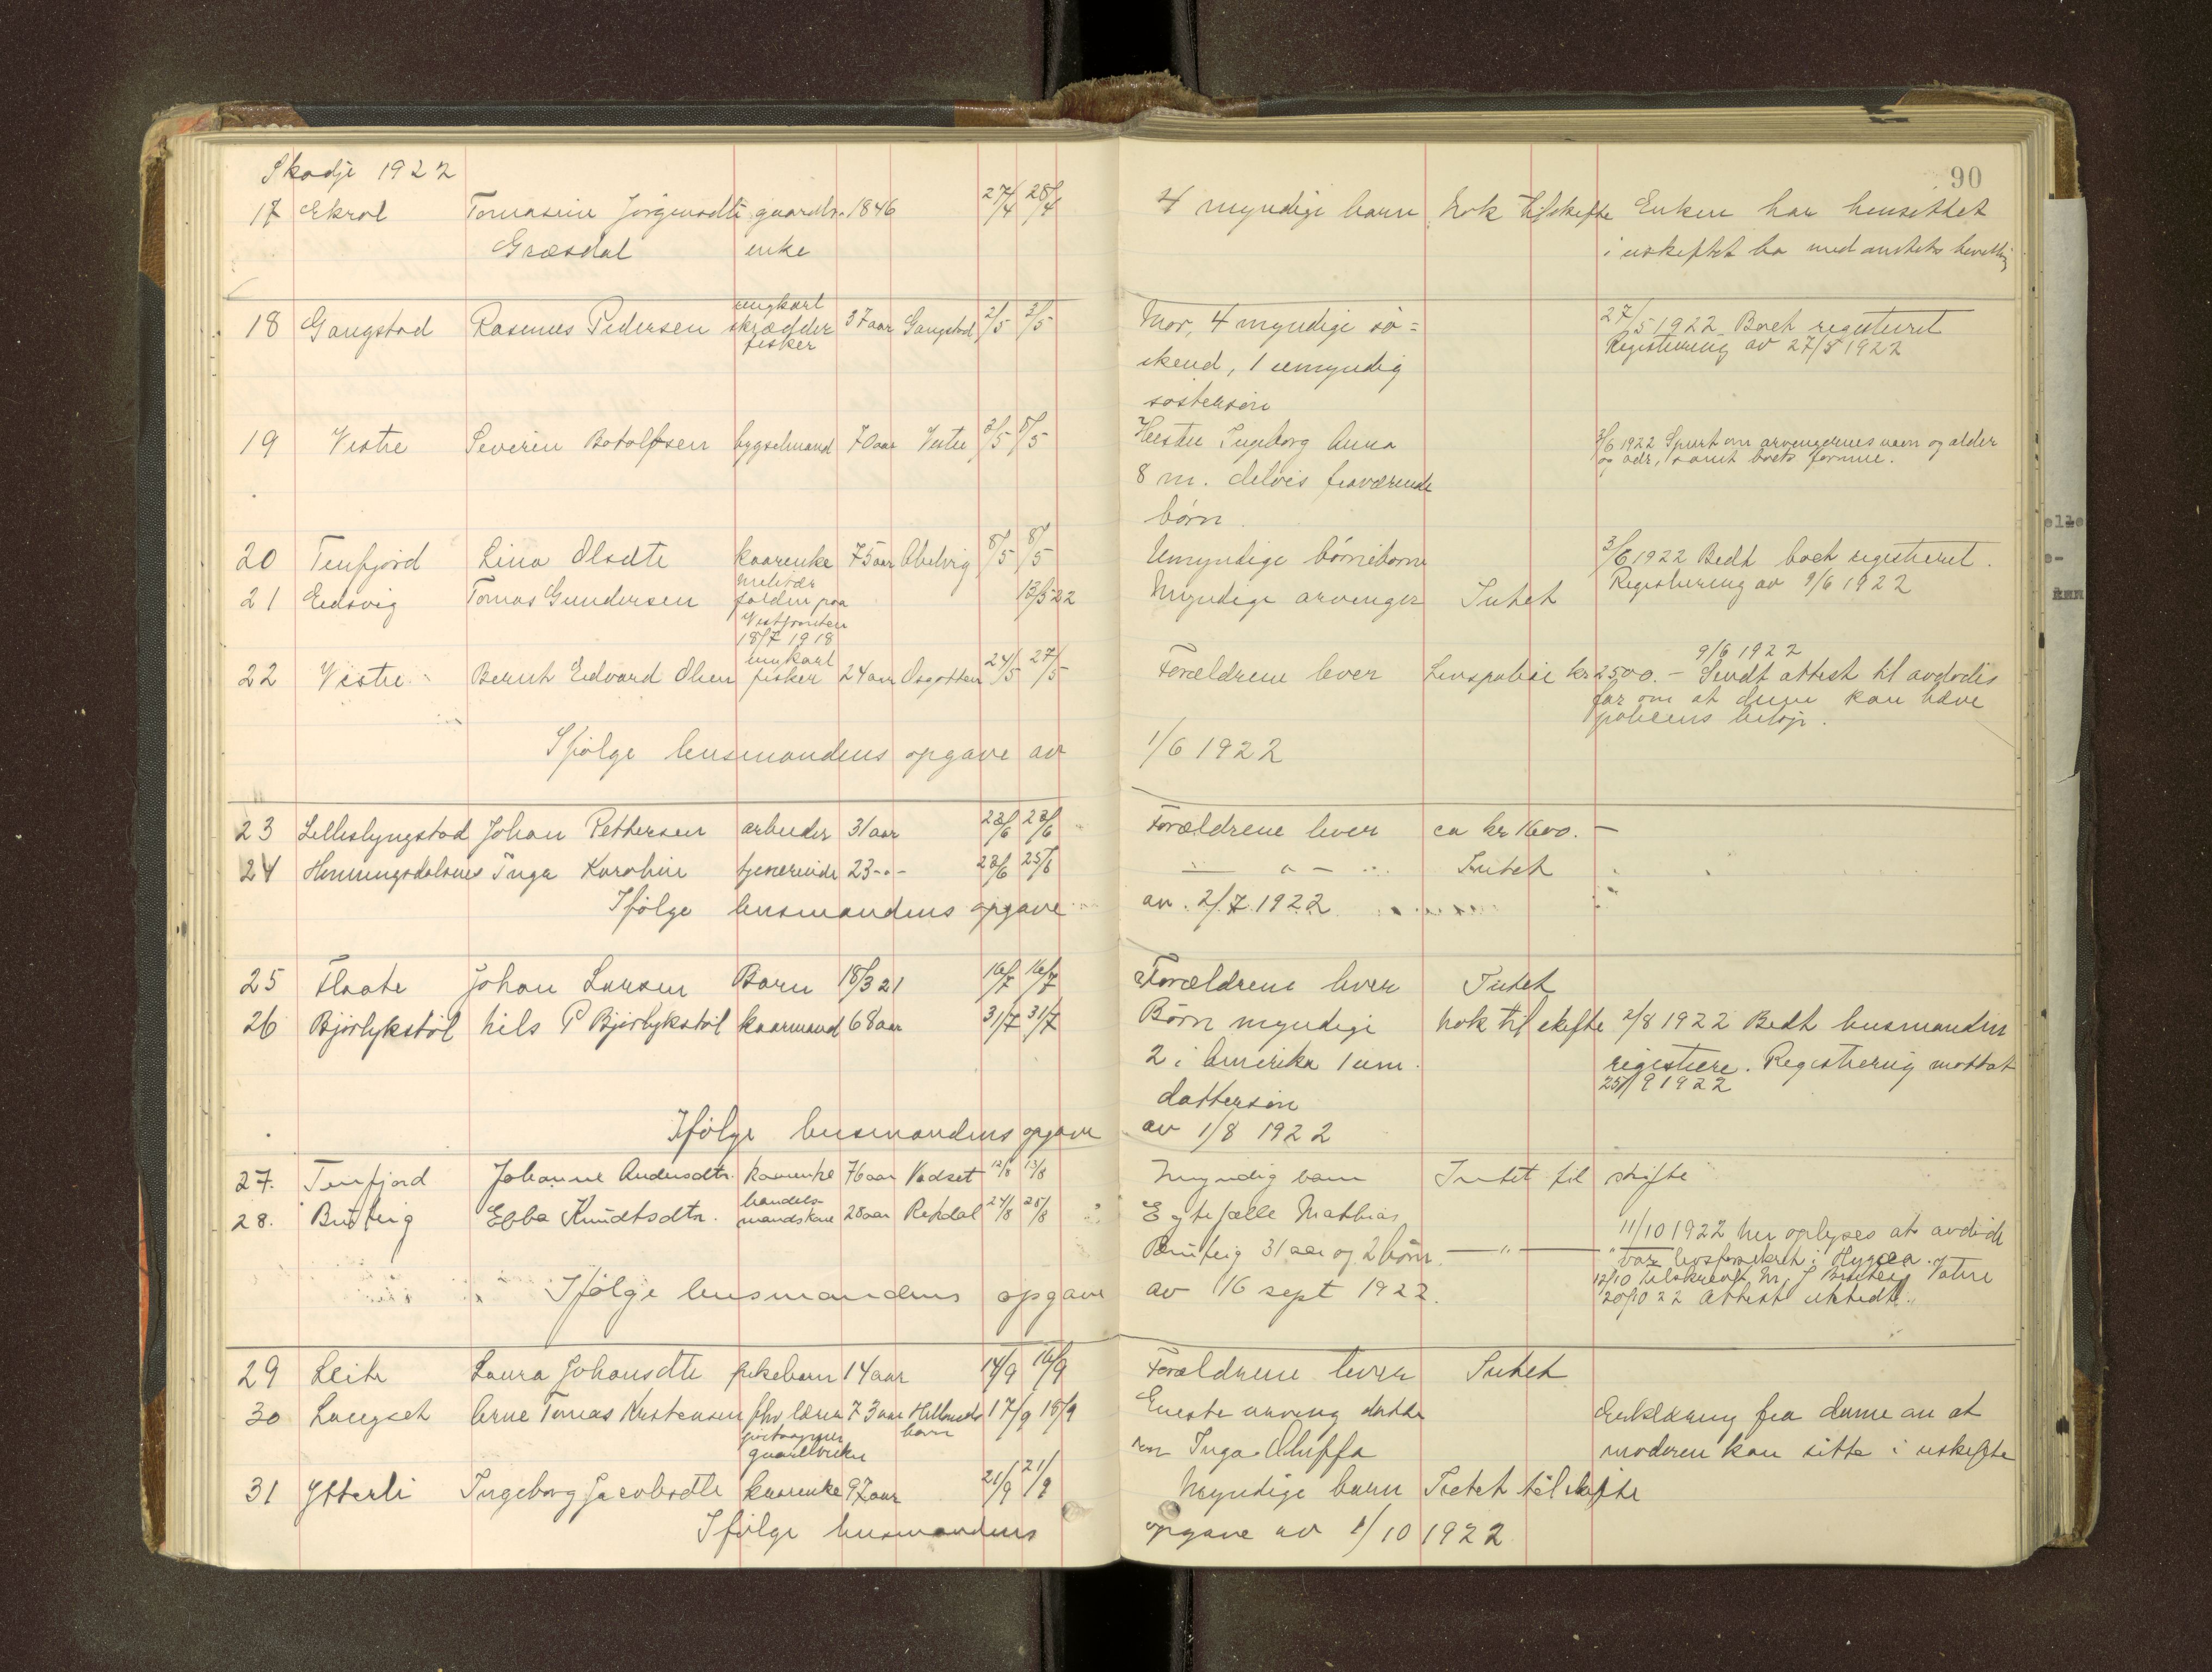 Skodje 1922
90
17 Ekrol Tomasine Jørgensdtr gaardbr. 1846 27/4 28/4 4 myndige barn Nok til skifte Enken har hensittet
Græsdal enke i uskiftet bo med avdødes
ungkarl
18 Gangstad Rasmus Pedersen skrædder 37 aar Gangstad 2/5 3/5 Mor, 4 myndige sø= 27/5 1922 Boet registreret
fisker Registrering av 27/5 1922
skend, 1 umyndig
søstersøn
19 Vestre Severin Botolfsen bygselmand 70 aar Vestre 3/5 5/5 Hustru Ingeborg Anna 3/6 1922 Spurt om arvingernes navn og alder
og adr, samt boets formue.
8 m. delvis fraværende
børn.
20 Tenfjord Lina Olsdtr kaarenke 75 aar Abelvig 8/5 8/5 Umyndige børnebørn 3/6 1922 Bedt boet registreret.
militær Registrering av 9/6 1922
21 Eidsvig Tomas Gundersen falden paa 13/5 22 Myndige arvinger Intet
Vestfronten
18/7 1918
ungkarl 9/6 1922
22 Vestre Bernt Edvard Olsen fisker 24 aar 24/5 27/5 Forældrene lever Livspolise kr 2500.- Sendt attest til avdødes
far om at denne kan hæve
polisens beløp.
Ifølge lensmandens opgave av 1/6 1922
23 Lilleslyngstad Johan Pettersen arbeider 31 aar 22/6 23/6 Forældrene lever ca kr 1600.-
24 Henningsdalsnes Inga Karoline tjenerinde 23 -"- 23/6 25/6 - " - Intet
Ifølge lensmandens opgave av 2/7 1922
25 Flaate Johan Larsen Barn 18/3 21 16/7 16/7 Forældrene lever Intet
26 Bjørlykstøl Nils P Bjørlykstøl kaarmand 68 aar 31/7 31/7 Børn myndige Nok til skifte 2/8 1922 Bedt lensmanden
2 i Amerika 1 um. registrere. Registrering mottat
25/9 1922
dattersøn
Ifølge lensmandens opgave av 1/8 1922
27. Tenfjord Johanne Andersdtr. kaarenke 76 aar Vadset 12/8 13/8 Myndig barn Intet til skifte
handels-
28. Bruteig Ebba Knudtsdtr. mandskone 28 aar Rekdal 24/8 25/8 Egtefælle Mathias 11/10 1922 Her oplyses at avdøde
Bruteig 31 aar og 2 børn. - " - var livsforsikret i Hygæa.
12/10 tilskrevet M. J Bruteig Vatne
20/10 22 Attest utstedt.
Ifølge lensmandens opgave av 16 sept 1922.
29 Leite Laura Johansdtr pikebarn 14 aar 14/9 16/9 Forældrene lever Intet
30 Langset Arne Tomas Kristensen fhv. lærer 73 aar 17/9 18/9 Eneste arving datte Erklæring fra denne om at
gaardbruker ren Inga Oluffa moderen kan sitte i uskifte
31 Ytterli Ingeborg Jacobsdtr kaarenke 97 aar 21/9 21/9 Myndige barn Intet til skifte
Ifølge lensmandens opgave av 1/10 1922